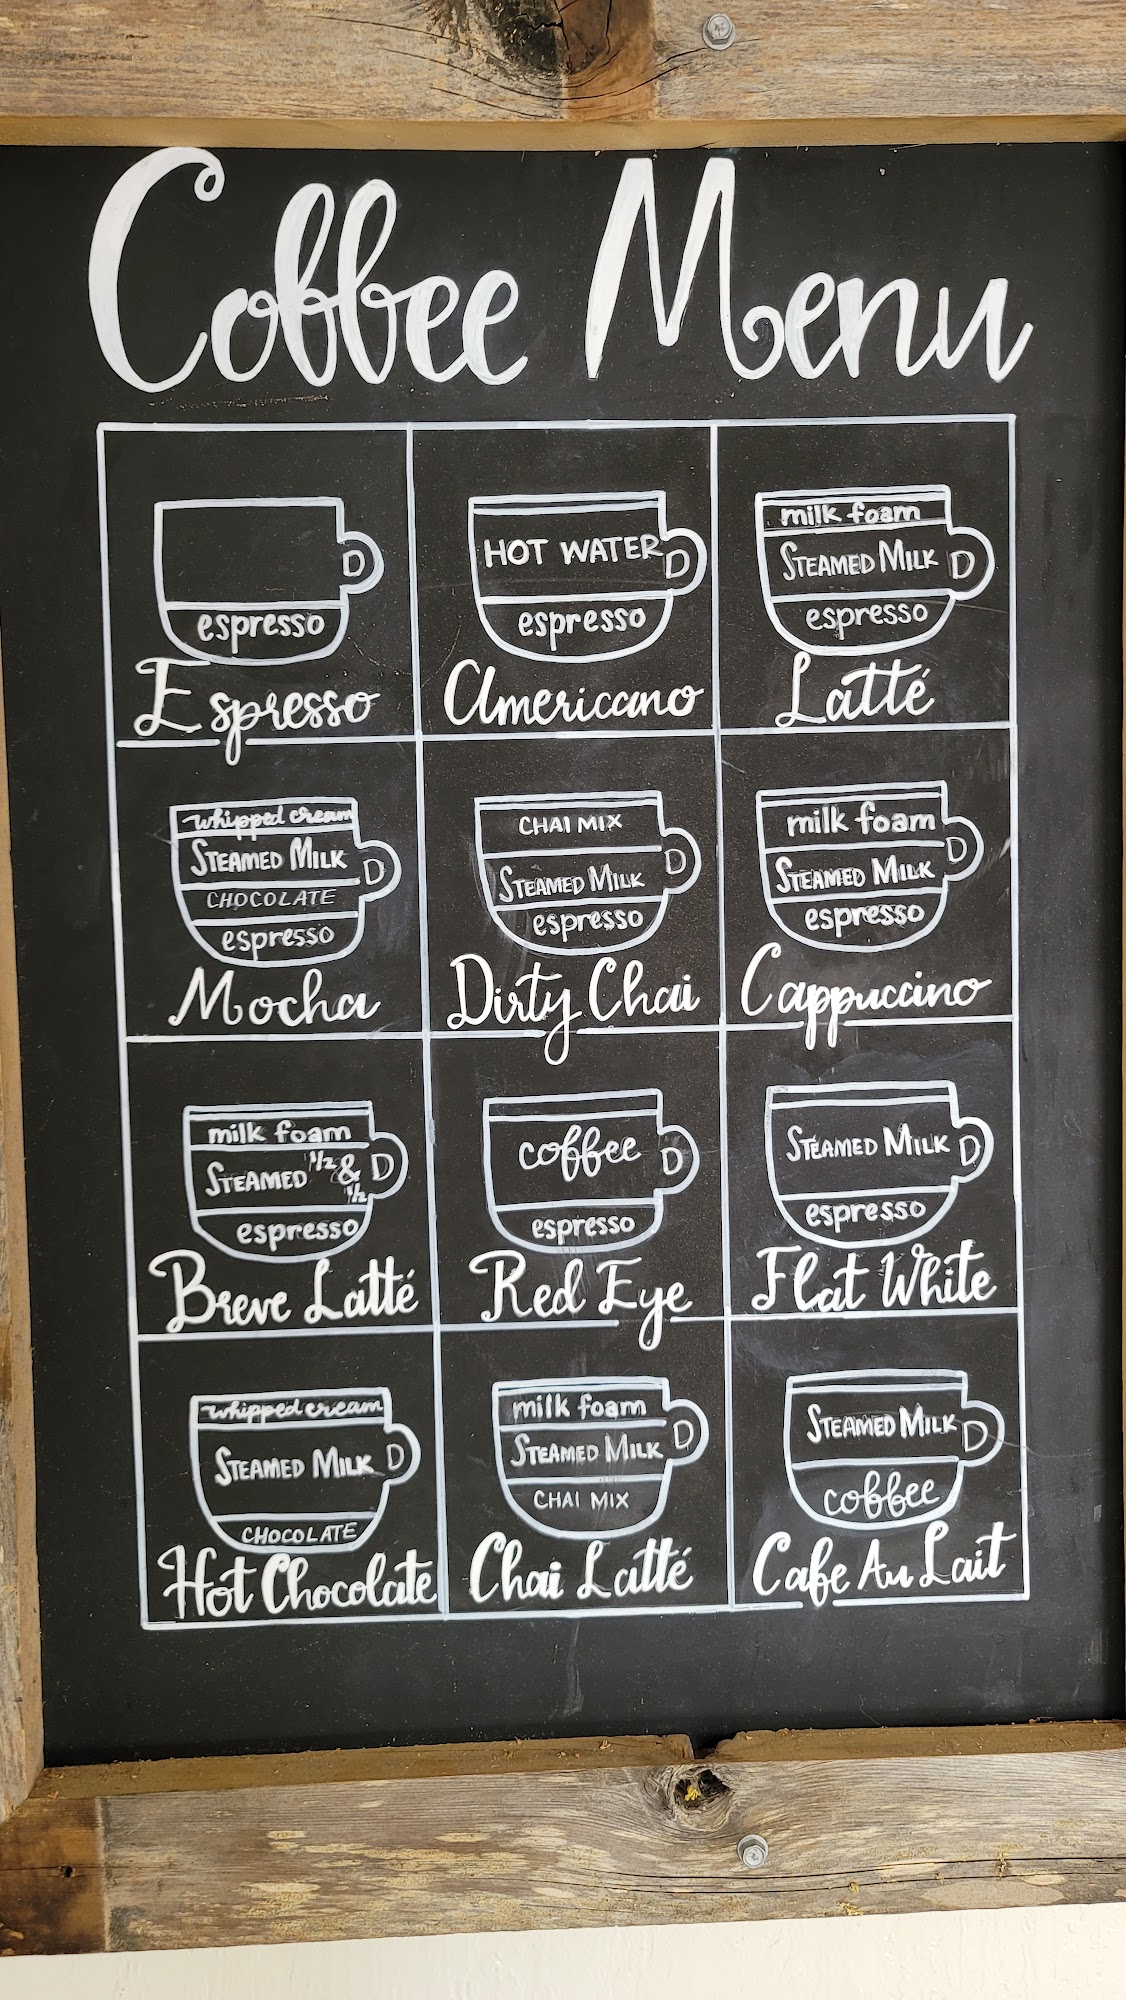 Coffee Menu
espresso
Espresso
HOT WATER
espresso
Americano
milk foam
STEAMED MILK
espresso
Latté
whipped cream
STEAMED MILK
CHOCOLATE
espresso
Mocha
CHAI MIX
STEAMED MILK
espresso
Dirty Chai
milk foam
STEAMED MILK
espresso
Cappuccino
milk foam
STEAMED 1/2 & 1/2
espresso
Breve Latté
coffee
espresso
Red Eye
STEAMED MILK
espresso
Flat White
whipped cream
STEAMED MILK
CHOCOLATE
Hot Chocolate
milk foam
STEAMED MILK
CHAI MIX
Chai Latté
STEAMED MILK
coffee
Cafe Au Lait